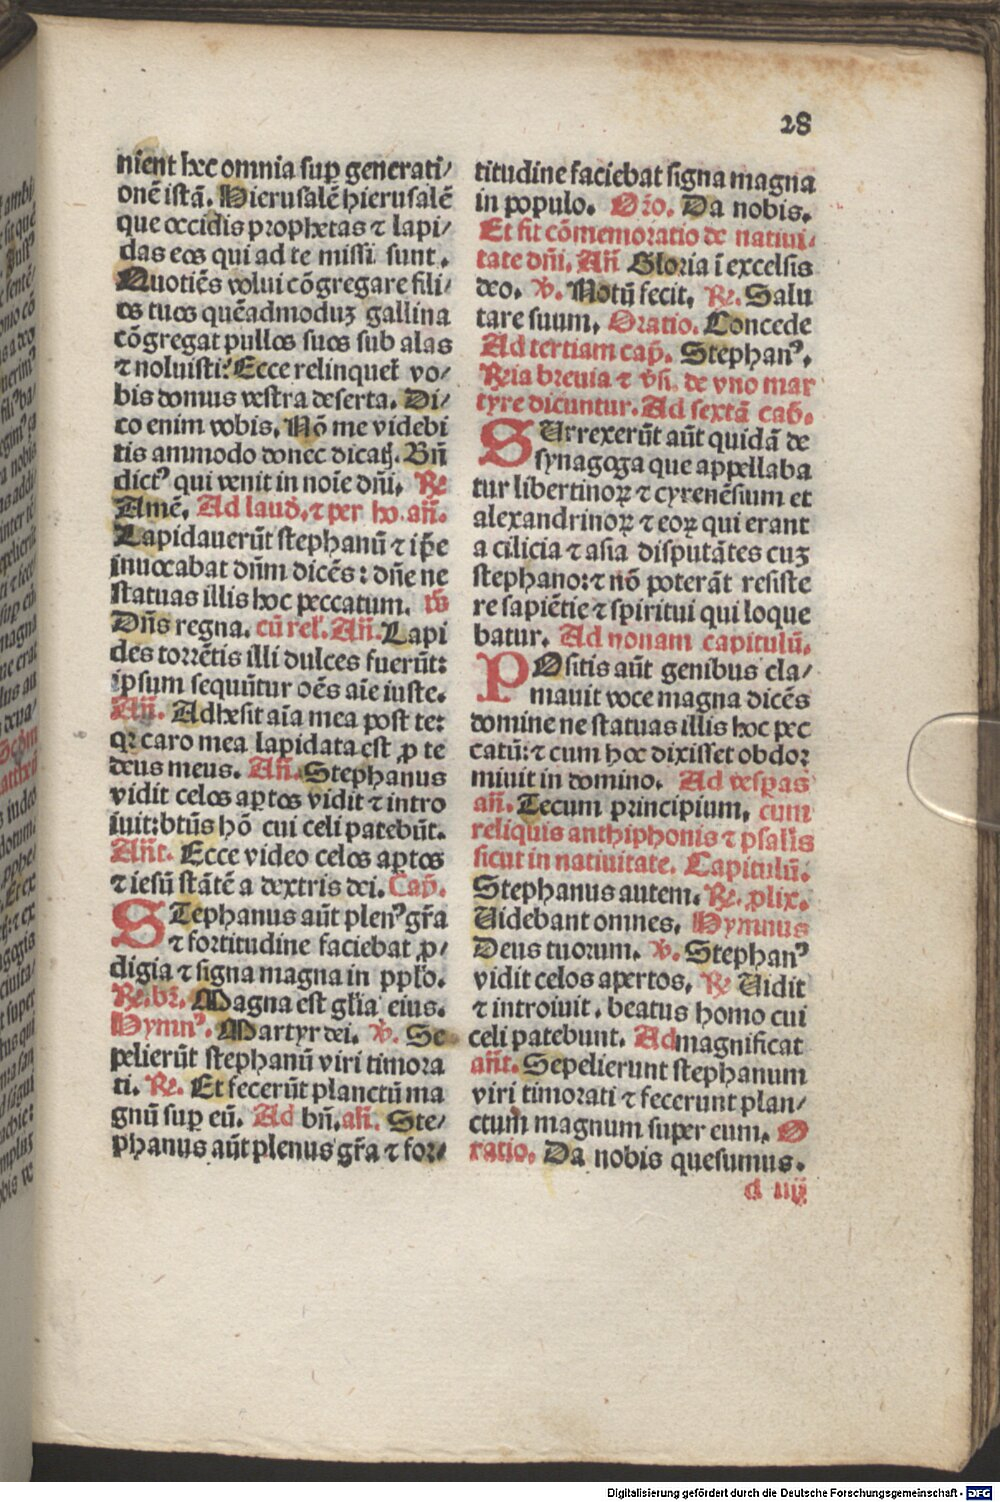 28
nient hec omnia sup̱ generati/
onē istā. Hierusalē hierusalē
que occidis prophetas ⁊ lapi/
das eos qui ad te missi sunt.
Quotiēs volui cōgregare fili/
os tuos quēadmoduꝫ gallina
cōgregat pullos suos sub alas
⁊ noluisti? Ecce relinquet̄ vo/
bis domus vestra deserta. Di/
co enim vobis. Nō me videbi
tis ammodo donec dicatꝭ. Bn̄
dictꝰ qui venit in noīe dn̄i. ℞
Amē. Ad laud̄. ⁊ per ho. an̄.
Lapidauerūt stephanū ⁊ ip̄e
inuocabat dn̄m dicēs: dn̄e ne
statuas illis hoc peccatum. p̄s
Dn̄s regna. cū rel̄. An̄. Lapi
des torrētis illi dulces fuerūt:
ip̄sum sequūtur oēs aīe iuste.
An̄. Adhesit aīa mea post te:
qꝛ caro mea lapidata est ꝓ te
deus meus. An̄. Stephanus
vidit celos ap̱tos vidit ⁊ intro
iuit: btūs hō cui celi patebūt.
An̄t. Ecce video celos ap̱tos
⁊ iesū stātē a dextris dei. Cap̄.
STephanus aūt plenꝰ gr̄a
⁊ fortitudine faciebat ꝓ/
digia ⁊ signa magna in ppl̄o.
℞. br̄. Magna est gl̄ia eius.
Hymnꝰ. Martyr dei. ℣. Se
pelierūt stephanū viri timora
ti. ℞. Et fecerūt planctū ma
gnū sup̱ eū. Ad bn̄. an̄. Ste/
phanus aūt plenus gr̄a ⁊ for/
titudine faciebat signa magna
in populo. Or̄o. Da nobis.
Et fit cōmemoratio de natiui/
tate dn̄i. An̄ Gloria ī excelsis
deo. ℣. Notū fecit. ℞. Salu
tare suum. Oratio. Concede
Ad tertiam cap̄. Stephanꝰ.
℞ia breuia ⁊ v̄si. de vno mar
tyre dicuntur. Ad sextā cap̄.
SUrrexerūt aūt quidā de
synagoga que appellaba
tur libertinoꝝ ⁊ cyrenēsium et
alexandrinoꝝ ⁊ eoꝝ qui erant
a cilicia ⁊ asia disputātes cuꝫ
stephano: ⁊ nō poterāt resiste
re sapiētie ⁊ spiritui qui loque
batur. Ad nonam capitulū.
POsitis aūt genibus cla/
mauit voce magna dicēs
domine ne statuas illis hoc pec
catū: ⁊ cum hoc dixisset obdor
miuit in domino. Ad vesp̱as
an̄. Tecum principium. cum
reliquis anthiphonis ⁊ psalīs
sicut in natiuitate. Capitulū.
Stephanus autem. ℞. ꝓlix.
Uidebant omnes. Hymnus
Deus tuorum. ℣. Stephanꝰ
vidit celos apertos. ℞ Uidit
⁊ introiuit. beatus homo cui
celi patebunt. Ad magnificat
an̄t. Sepelierunt stephanum
viri timorati ⁊ fecerunt plan/
ctum magnum super eum. O
ratio. Da nobis quesumus.
d iiij
Digitalisierung gefördert durch die Deutsche Forschungsgemeinschaft - DFG